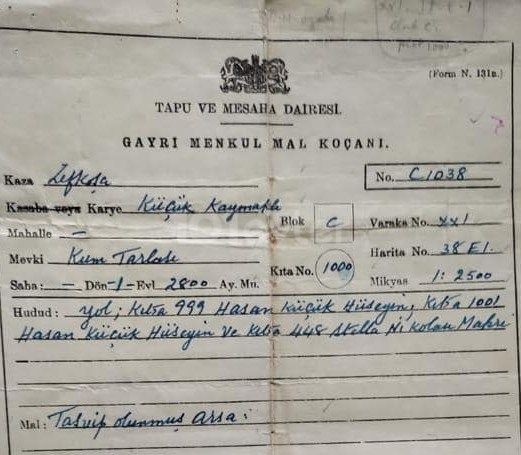 (Form N. 131a.)
TAPU VE MESAHA DAİRESİ.
GAYRİ MENKUL MAL KOÇANI.
Kaza Lefkoşa No. C1038
Kasaba veya Karye Küçük Kaymaklı
Blok C Varaka No. XXI
Mahalle —
Mevki Kum Tarlası Kıta No. 1000 Harita No. 38 E1.
Saha: — Dön -1- Evl 2800 Ay. Mu. Mikyas 1: 2500
Hudud: yol; Kıta 999 Hasan Küçük Hüseyin, Kıta 1001
Hasan Küçük Hüseyin ve Kıta 448 Stella Nikolau Makri
Mal: Tasvip olunmuş Arsa: